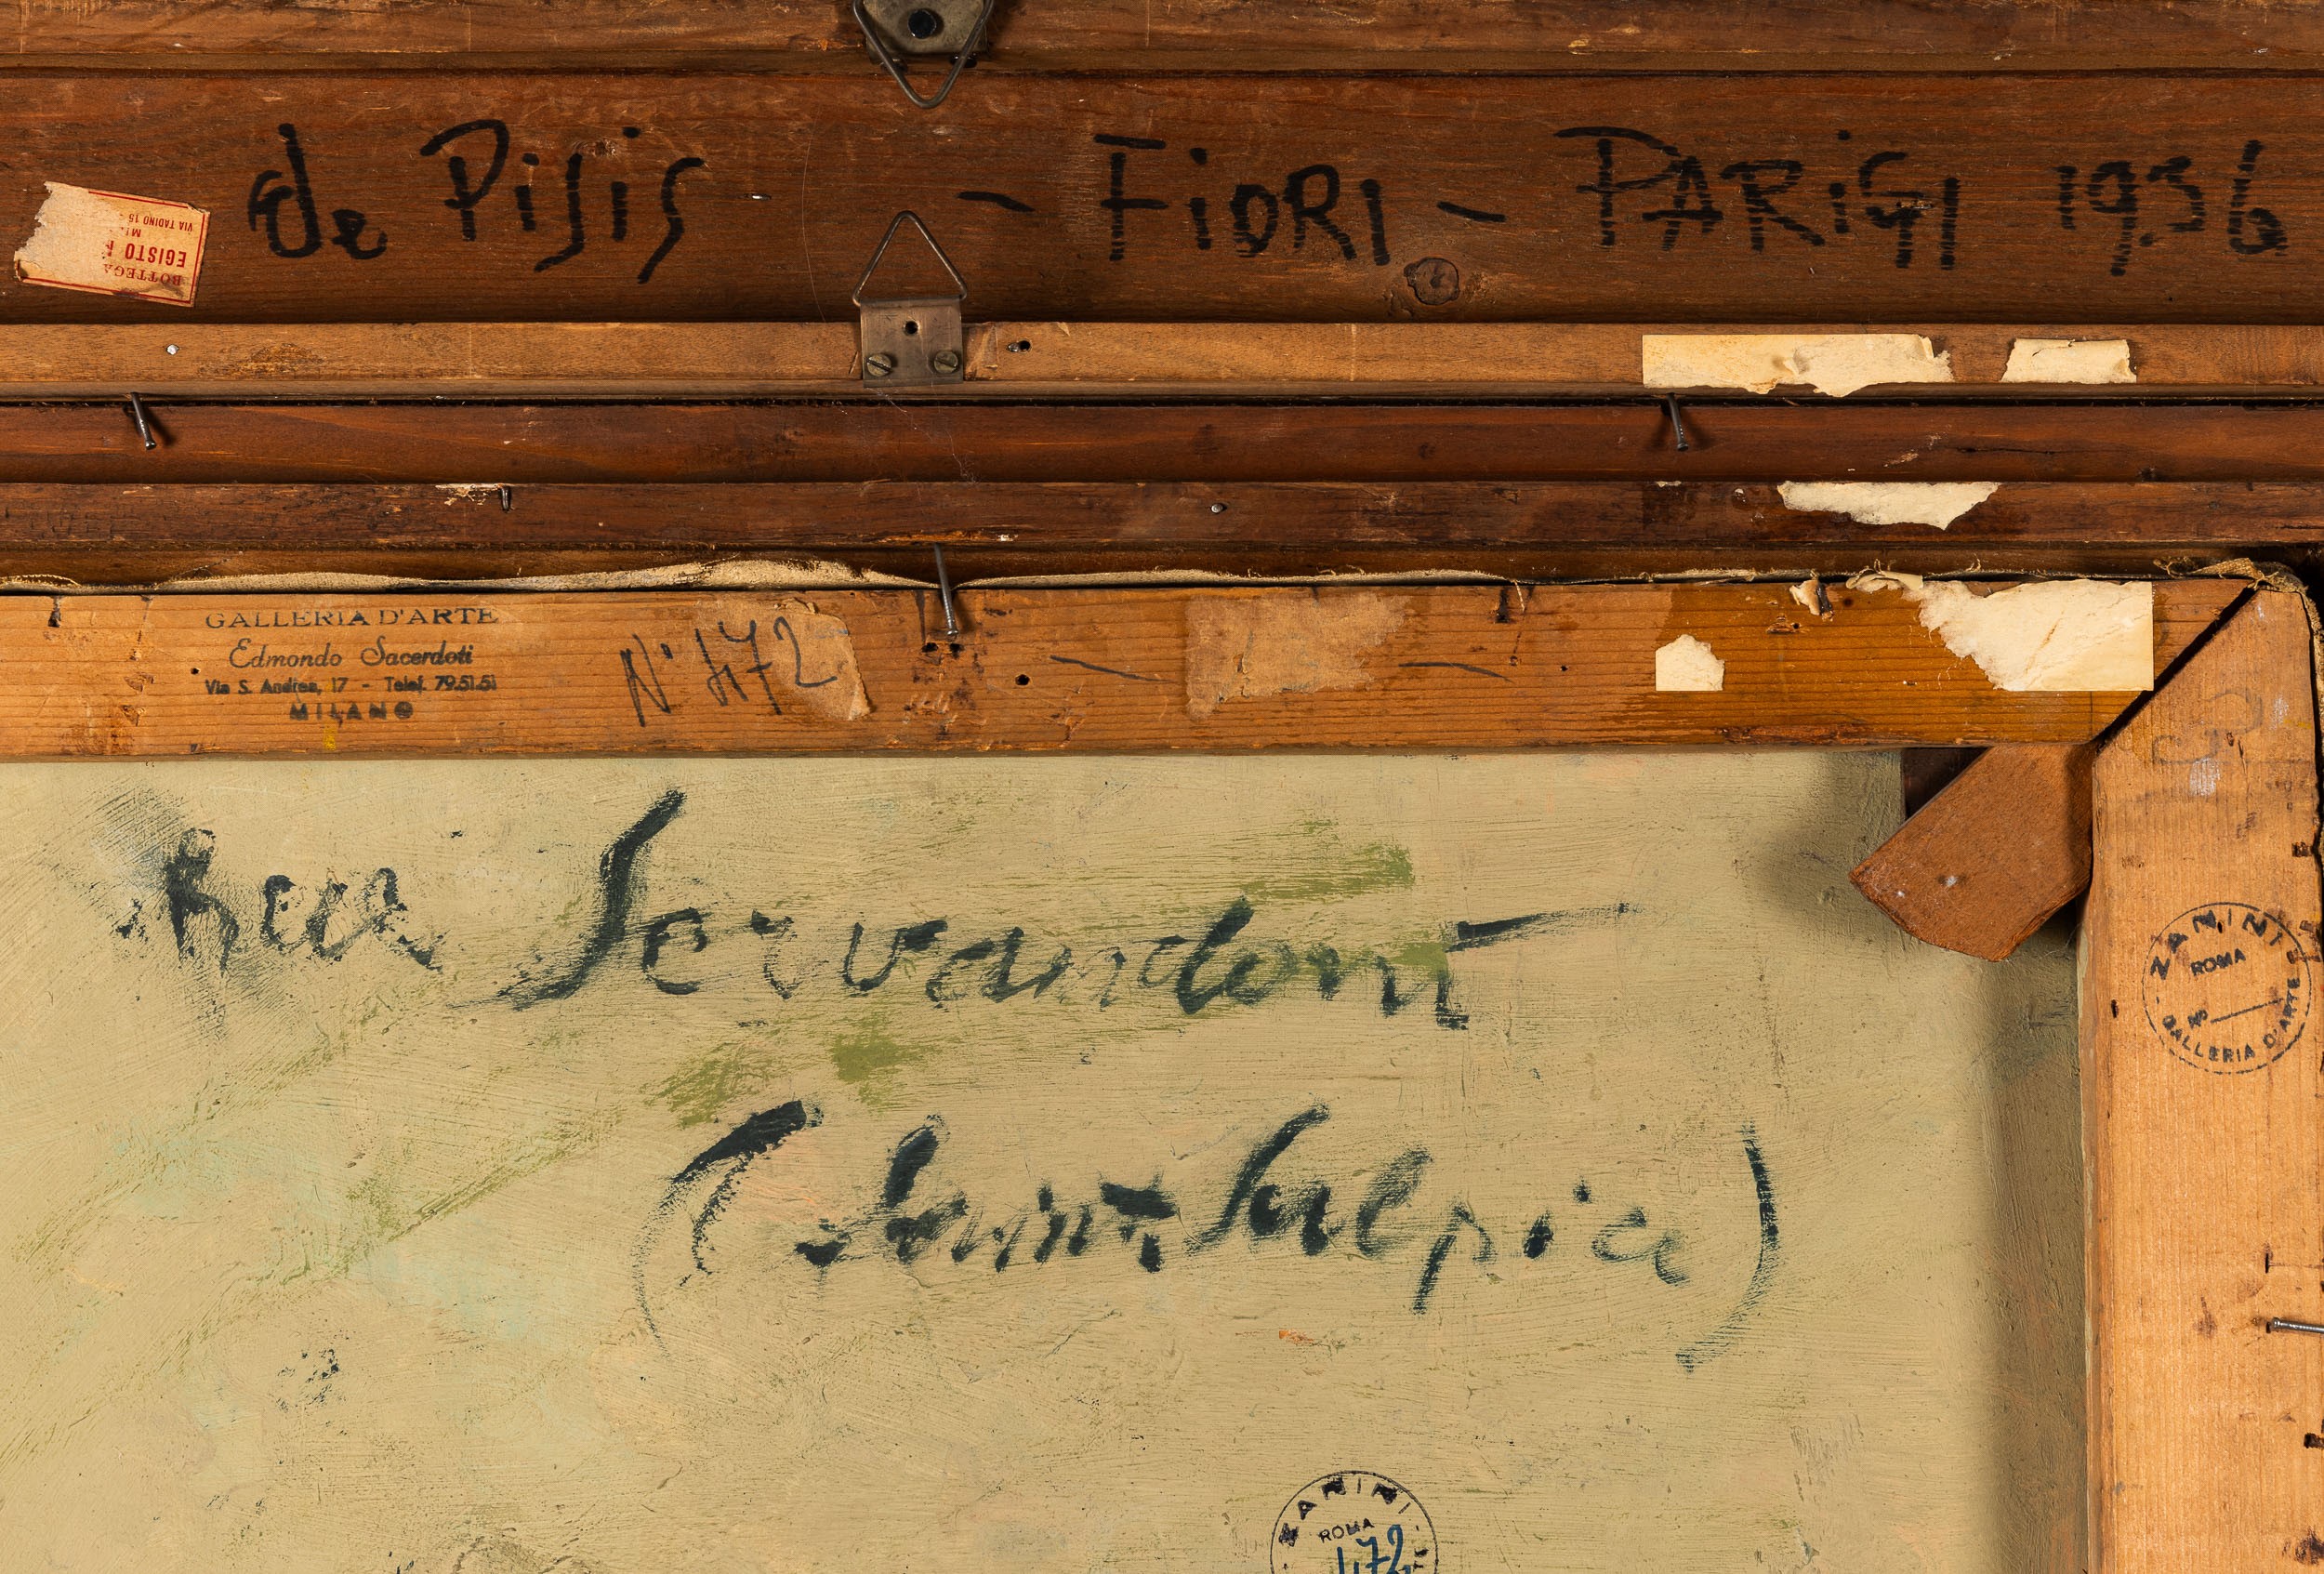 de Pisis - FiORI - PARiGI 1936
BOTTEGA
EGISTO
MI
VIA TADINO 15
GALLERIA D'ARTE
Edmondo Sacerdoti
Via S. Andrea, 17 - Telef. 79.51.51
MILANO
N° 472 — —
Servandoni
(Saint Sulpice)
ZANINI
ROMA
No
GALLERIA D'ARTE
ZANINI
ROMA
472